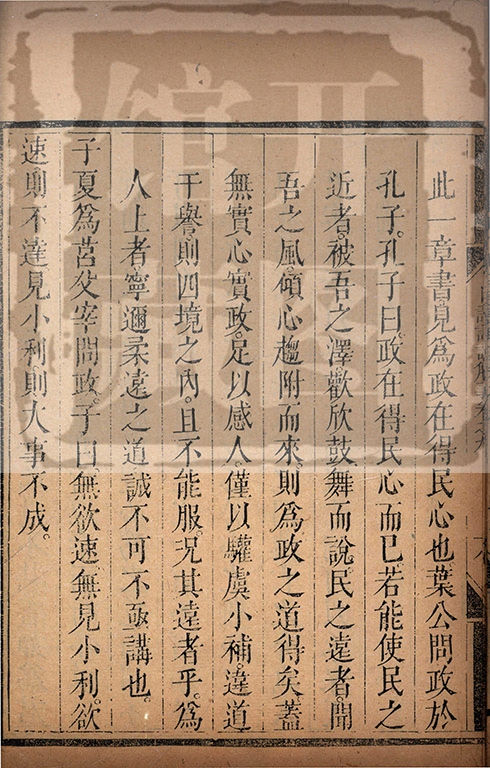 此一章書見爲政在得民心也。葉公問政於
孔子。孔子曰。政在得民心而已。若能使民之
近者。被吾之澤。歡欣鼓舞而說。民之遠者。聞
吾之風。傾心趨附而來。則爲政之道得矣。蓋
無實心實政。足以感人。僅以驩虞小補。違道
干譽。則四境之內。且不能服。況其遠者乎。爲
人上者寧邇柔遠之道誠不可不亟講也。
子夏爲莒父宰問政。子曰。無欲速。無見小利。欲
速則不達見小利。則大事不成。